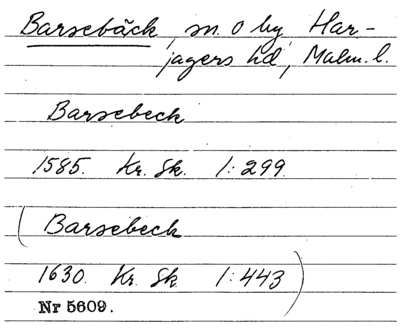 Barsebäck, sn. o by Har-
jagers hd, Malm. l.
Barsebeck
1585. Kr. Sk. 1:299.
(Barsebeck
1630. Kr. Sk. 1:443)
Nr 5609.